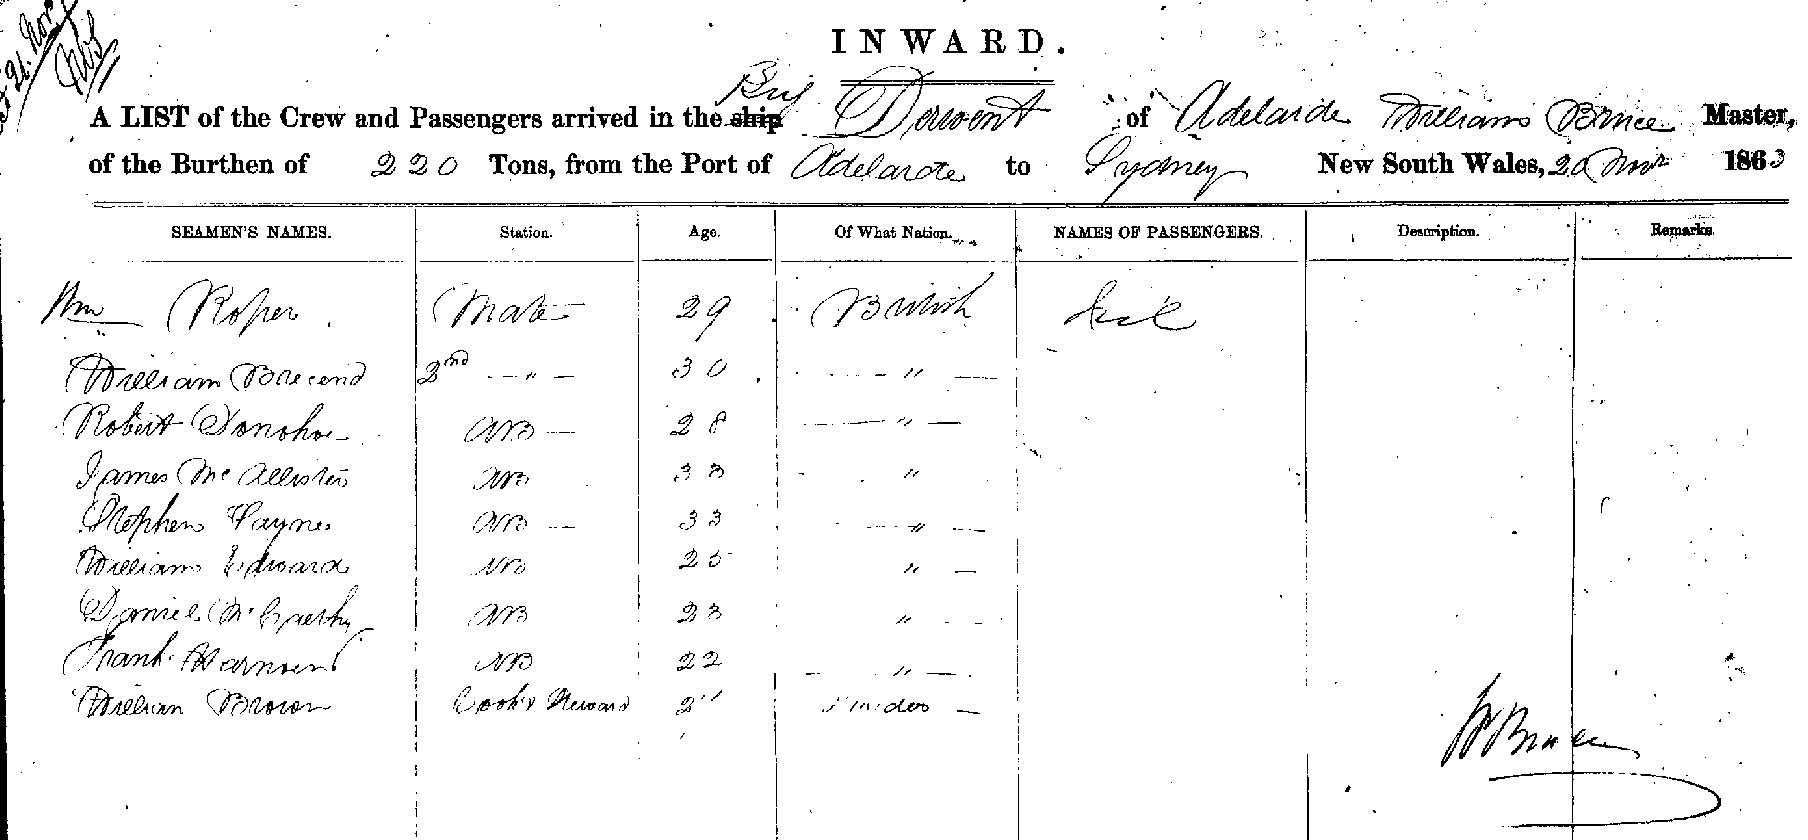 INWARD.
A LIST of the Crew and Passengers arrived in the ship Brig Derwent of Adelaide William Bruce Master,
of the Burthen of 220 Tons, from the Port of Adelaide to Sydney New South Wales, 20 Novr 1863
SEAMEN'S NAMES. Station. Age. Of What Nation. NAMES OF PASSENGERS. Description. Remarks.
Wm Roper Mate 29 British
William 2nd — " — 30 — " —
Robert Donohoe AB — 28 — " —
James McAllister AB 33 "
Stephen Payne AB — 33 — " —
William Edward AB 25 " —
Daniel AB 23 "
Frank AB 22 — " —
William Brown Cook & Steward
W Bruce